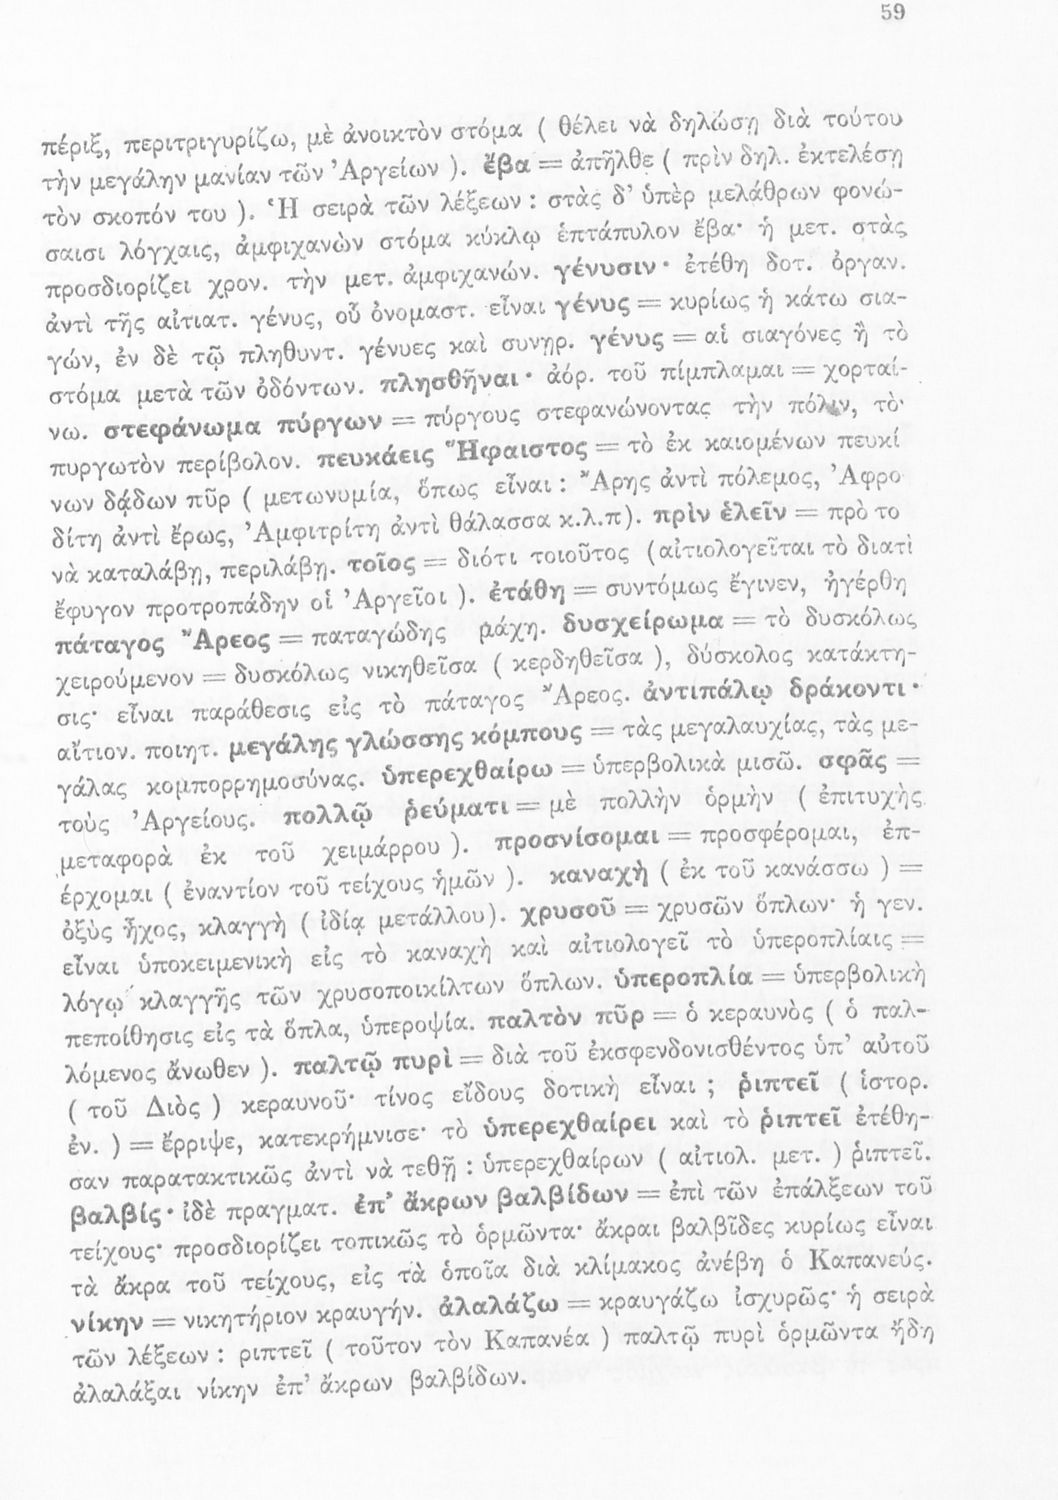 59
πέριξ, περιτριγυρίζω, μὲ ἀνοικτὸν στόμα ( θέλει νὰ δηλώσῃ διὰ τούτου
τὴν μεγάλην μανίαν τῶν Ἀργείων ). ἔβα = ἀπῆλθε ( πρὶν δηλ. ἐκτελέσῃ
τὸν σκοπόν του ). Ἡ σειρὰ τῶν λέξεων : στὰς δ' ὑπὲρ μελάθρων φονώ-
σαισι λόγχαις, ἀμφιχανὼν στόμα κύκλῳ ἑπτάπυλον ἔβα· ἡ μετ. στὰς
προσδιορίζει χρον. τὴν μετ. ἀμφιχανών. γένυσιν· ἐτέθη δοτ. ὀργαν.
ἀντὶ τῆς αἰτιατ. γένυς, οὗ ὀνομαστ. εἶναι γένυς = κυρίως ἡ κάτω σια-
γών, ἐν δὲ τῷ πληθυντ. γένυες καὶ συνῃρ. γένυς = αἱ σιαγόνες ἢ τὸ
στόμα μετὰ τῶν ὀδόντων. πλησθῆναι· ἀόρ. τοῦ πίμπλαμαι = χορταί-
νω. στεφάνωμα πύργων = πύργους στεφανώνοντας τὴν πόλιν, τὸ
πυργωτὸν περίβολον. πευκάεις Ἥφαιστος = τὸ ἐκ καιομένων πευκί
νων δᾴδων πῦρ ( μετωνυμία, ὅπως εἶναι : Ἄρης ἀντὶ πόλεμος, Ἀφρο
δίτη ἀντὶ ἔρως, Ἀμφιτρίτη ἀντὶ θάλασσα κ.λ.π). πρὶν ἑλεῖν = πρὸ το
νὰ καταλάβῃ, περιλάβῃ. τοῖος = διότι τοιοῦτος (αἰτιολογεῖται τὸ διατὶ
ἔφυγον προτροπάδην οἱ Ἀργεῖοι ). ἐτάθη = συντόμως ἔγινεν, ἠγέρθη
πάταγος Ἄρεος = παταγώδης μάχη. δυσχείρωμα = τὸ δυσκόλως
χειρούμενον = δυσκόλως νικηθεῖσα ( κερδηθεῖσα ), δύσκολος κατάκτη-
σις· εἶναι παράθεσις εἰς τὸ πάταγος Ἄρεος. ἀντιπάλῳ δράκοντι·
αἴτιον. ποιητ. μεγάλης γλώσσης κόμπους = τὰς μεγαλαυχίας, τὰς με-
γάλας κομπορρημοσύνας. ὑπερεχθαίρω = ὑπερβολικὰ μισῶ. σφᾶς =
τοὺς Ἀργείους. πολλῷ ῥεύματι = μὲ πολλὴν ὁρμὴν ( ἐπιτυχὴς
μεταφορὰ ἐκ τοῦ χειμάρρου ). προσνίσομαι = προσφέρομαι, ἐπ-
έρχομαι ( ἐναντίον τοῦ τείχους ἡμῶν ). καναχὴ ( ἐκ τοῦ κανάσσω ) =
ὀξὺς ἦχος, κλαγγὴ ( ἰδίᾳ μετάλλου). χρυσοῦ = χρυσῶν ὅπλων· ἡ γεν.
εἶναι ὑποκειμενικὴ εἰς τὸ καναχὴ καὶ αἰτιολογεῖ τὸ ὑπεροπλίαις =
λόγῳ κλαγγῆς τῶν χρυσοποικίλτων ὅπλων. ὑπεροπλία = ὑπερβολικὴ
πεποίθησις εἰς τὰ ὅπλα, ὑπεροψία. παλτὸν πῦρ = ὁ κεραυνὸς ( ὁ παλ-
λόμενος ἄνωθεν ). παλτῷ πυρὶ = διὰ τοῦ ἐκσφενδονισθέντος ὑπ' αὐτοῦ
( τοῦ Διὸς ) κεραυνοῦ· τίνος εἴδους δοτικὴ εἶναι ; ῥιπτεῖ ( ἱστορ.
ἐν. ) = ἔρριψε, κατεκρήμνισε· τὸ ὑπερεχθαίρει καὶ τὸ ῥιπτεῖ ἐτέθη-
σαν παρατακτικῶς ἀντὶ νὰ τεθῇ : ὑπερεχθαίρων ( αἰτιολ. μετ. ) ῥιπτεῖ.
βαλβίς· ἰδὲ πραγματ. ἐπ' ἄκρων βαλβίδων = ἐπὶ τῶν ἐπάλξεων τοῦ
τείχους· προσδιορίζει τοπικῶς τὸ ὁρμῶντα· ἄκραι βαλβῖδες κυρίως εἶναι
τὰ ἄκρα τοῦ τείχους, εἰς τὰ ὁποῖα διὰ κλίμακος ἀνέβη ὁ Καπανεύς.
νίκην = νικητήριον κραυγήν. ἀλαλάζω = κραυγάζω ἰσχυρῶς· ἡ σειρὰ
τῶν λέξεων : ριπτεῖ ( τοῦτον τὸν Καπανέα ) παλτῷ πυρὶ ὁρμῶντα ἤδη
ἀλαλάξαι νίκην ἐπ' ἄκρων βαλβίδων.